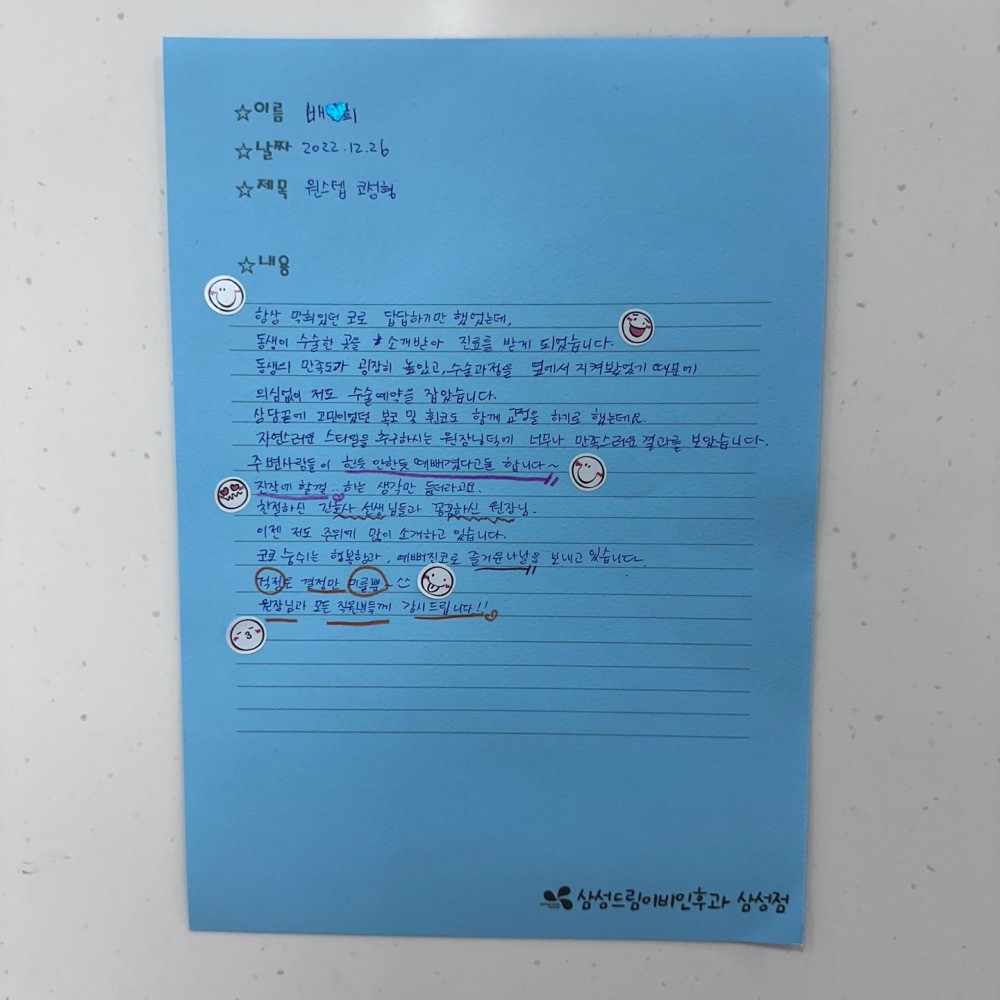 ☆이름 배희
☆날짜 2022.12.26
☆제목 원스텝 코성형
☆내용
항상 막혀있던 코로 답답하기만 했었는데,
동생이 수술한 곳을 소개받아 진료를 받게 되었습니다.
동생의 만족도가 굉장히 높았고, 수술과정을 옆에서 지켜봤었기 때문에
의심없이 저도 수술예약을 잡았습니다.
상담끝에 고민이었던 복코 및 휜코도 함께 교정을 하기로 했는데요.
자연스러운 스타일을 추구하시는 원장님덕에 너무나 만족스러운 결과를 보았습니다.
주변사람들이 한듯 안한듯 예뻐졌다고들 합니다~
진작에 할걸.. 하는 생각만 들더라고요.
친절하신 간호사 선생님들과 꼼꼼하신 원장님.
이젠 저도 주위에 많이 소개하고 있습니다.
코로 숨쉬는 행복함과, 예뻐진코로 즐거운나날을 보내고 있습니다.
걱정은 결정만 미룰뿐~^^
원장님과 모든 직원분들께 감사드립니다!!
삼성드림이비인후과 삼성점